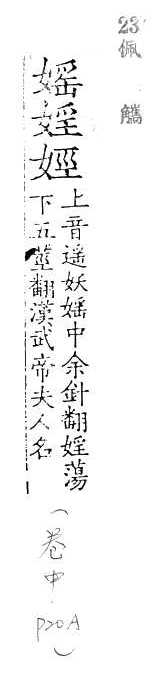 23佩觿
媱婬娙
上音遥妖媱中余針翻婬蕩
下五莖翻漢武帝夫人名
(卷中P20A)